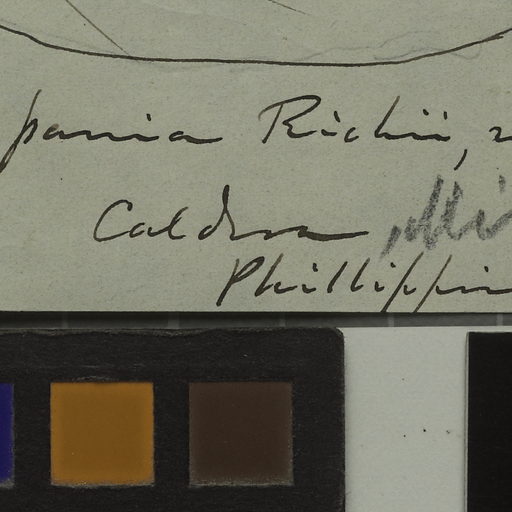 pania Richii,
Caldera,
Phillippin